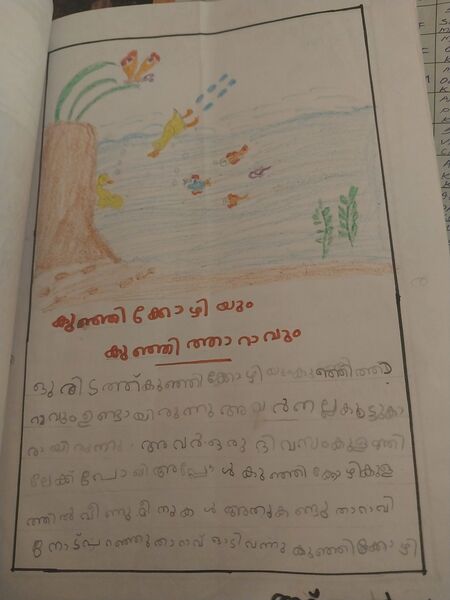 കുഞ്ഞിക്കോഴിയും
കുഞ്ഞിത്താറാവും
ഒരിടത്ത് കുഞ്ഞിക്കോഴിയുംകുഞ്ഞിത്താ
റാവും ഉണ്ടായിരുന്നു അവർ നല്ല കൂട്ടുകാ
രായിരുന്നു. അവർ ഒരു ദിവസം കുളത്തി
ലേക്ക് പോയി അപ്പോൾ കുഞ്ഞിക്കോഴികുള
ത്തിൽ വീണു മീനുകൾ അതുകണ്ടു താറാവി
നോട്പറഞ്ഞു താറാവ് ഓടി വന്നു കുഞ്ഞിക്കോഴി